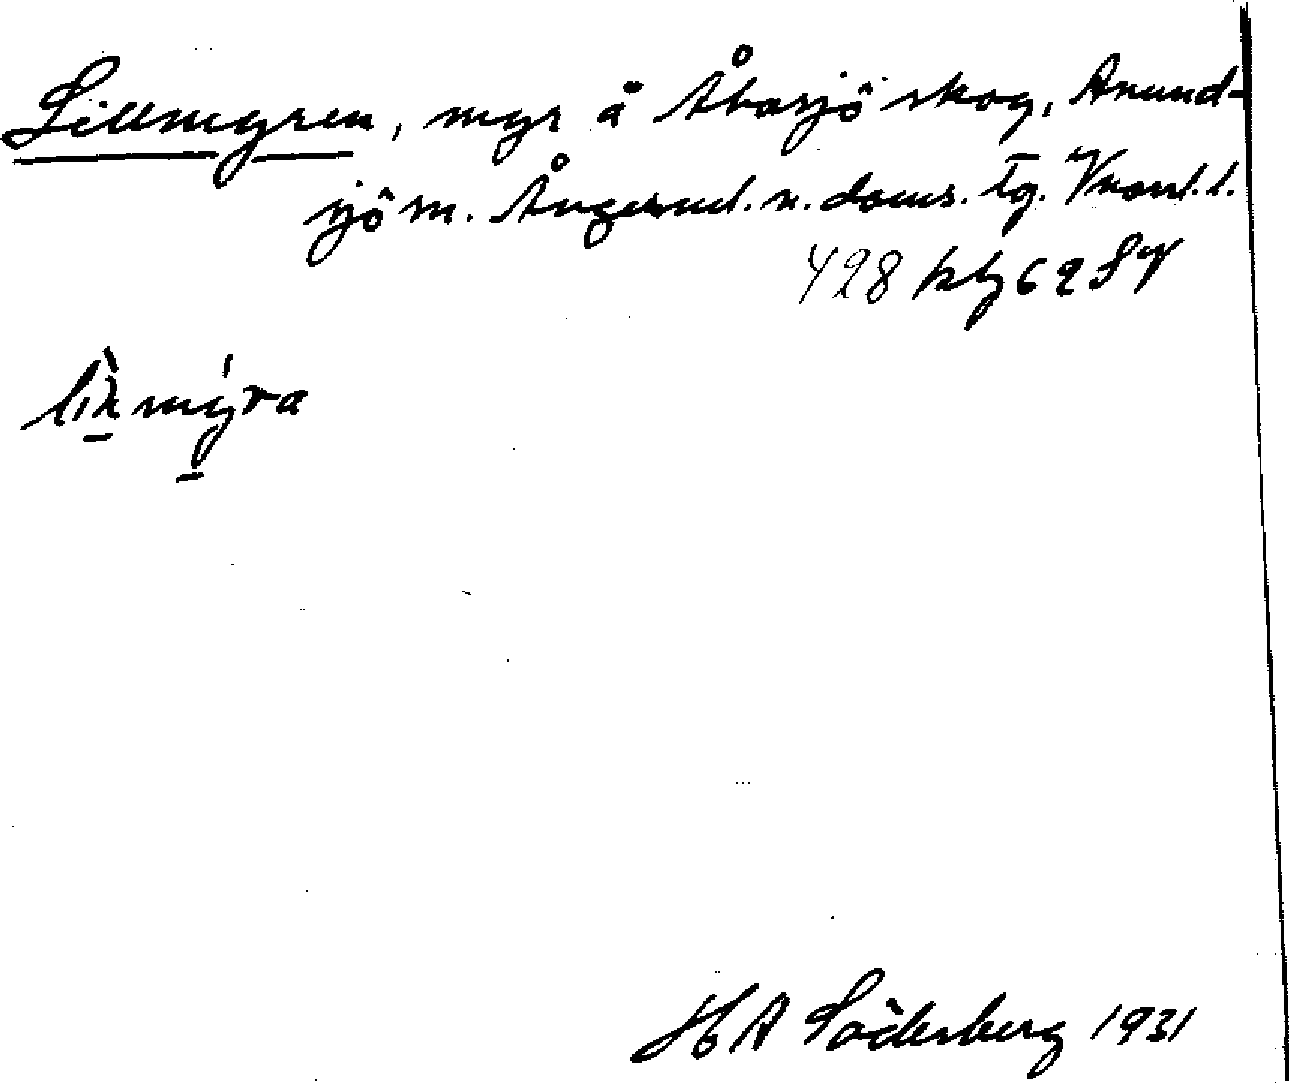 Lillmyren, myr å Åbosjö skog, Anund-
sjö sn. Ångerml. n. doms. tg. Vnorrl. l.
428 kbl 62 SV
H A Söderberg 1931